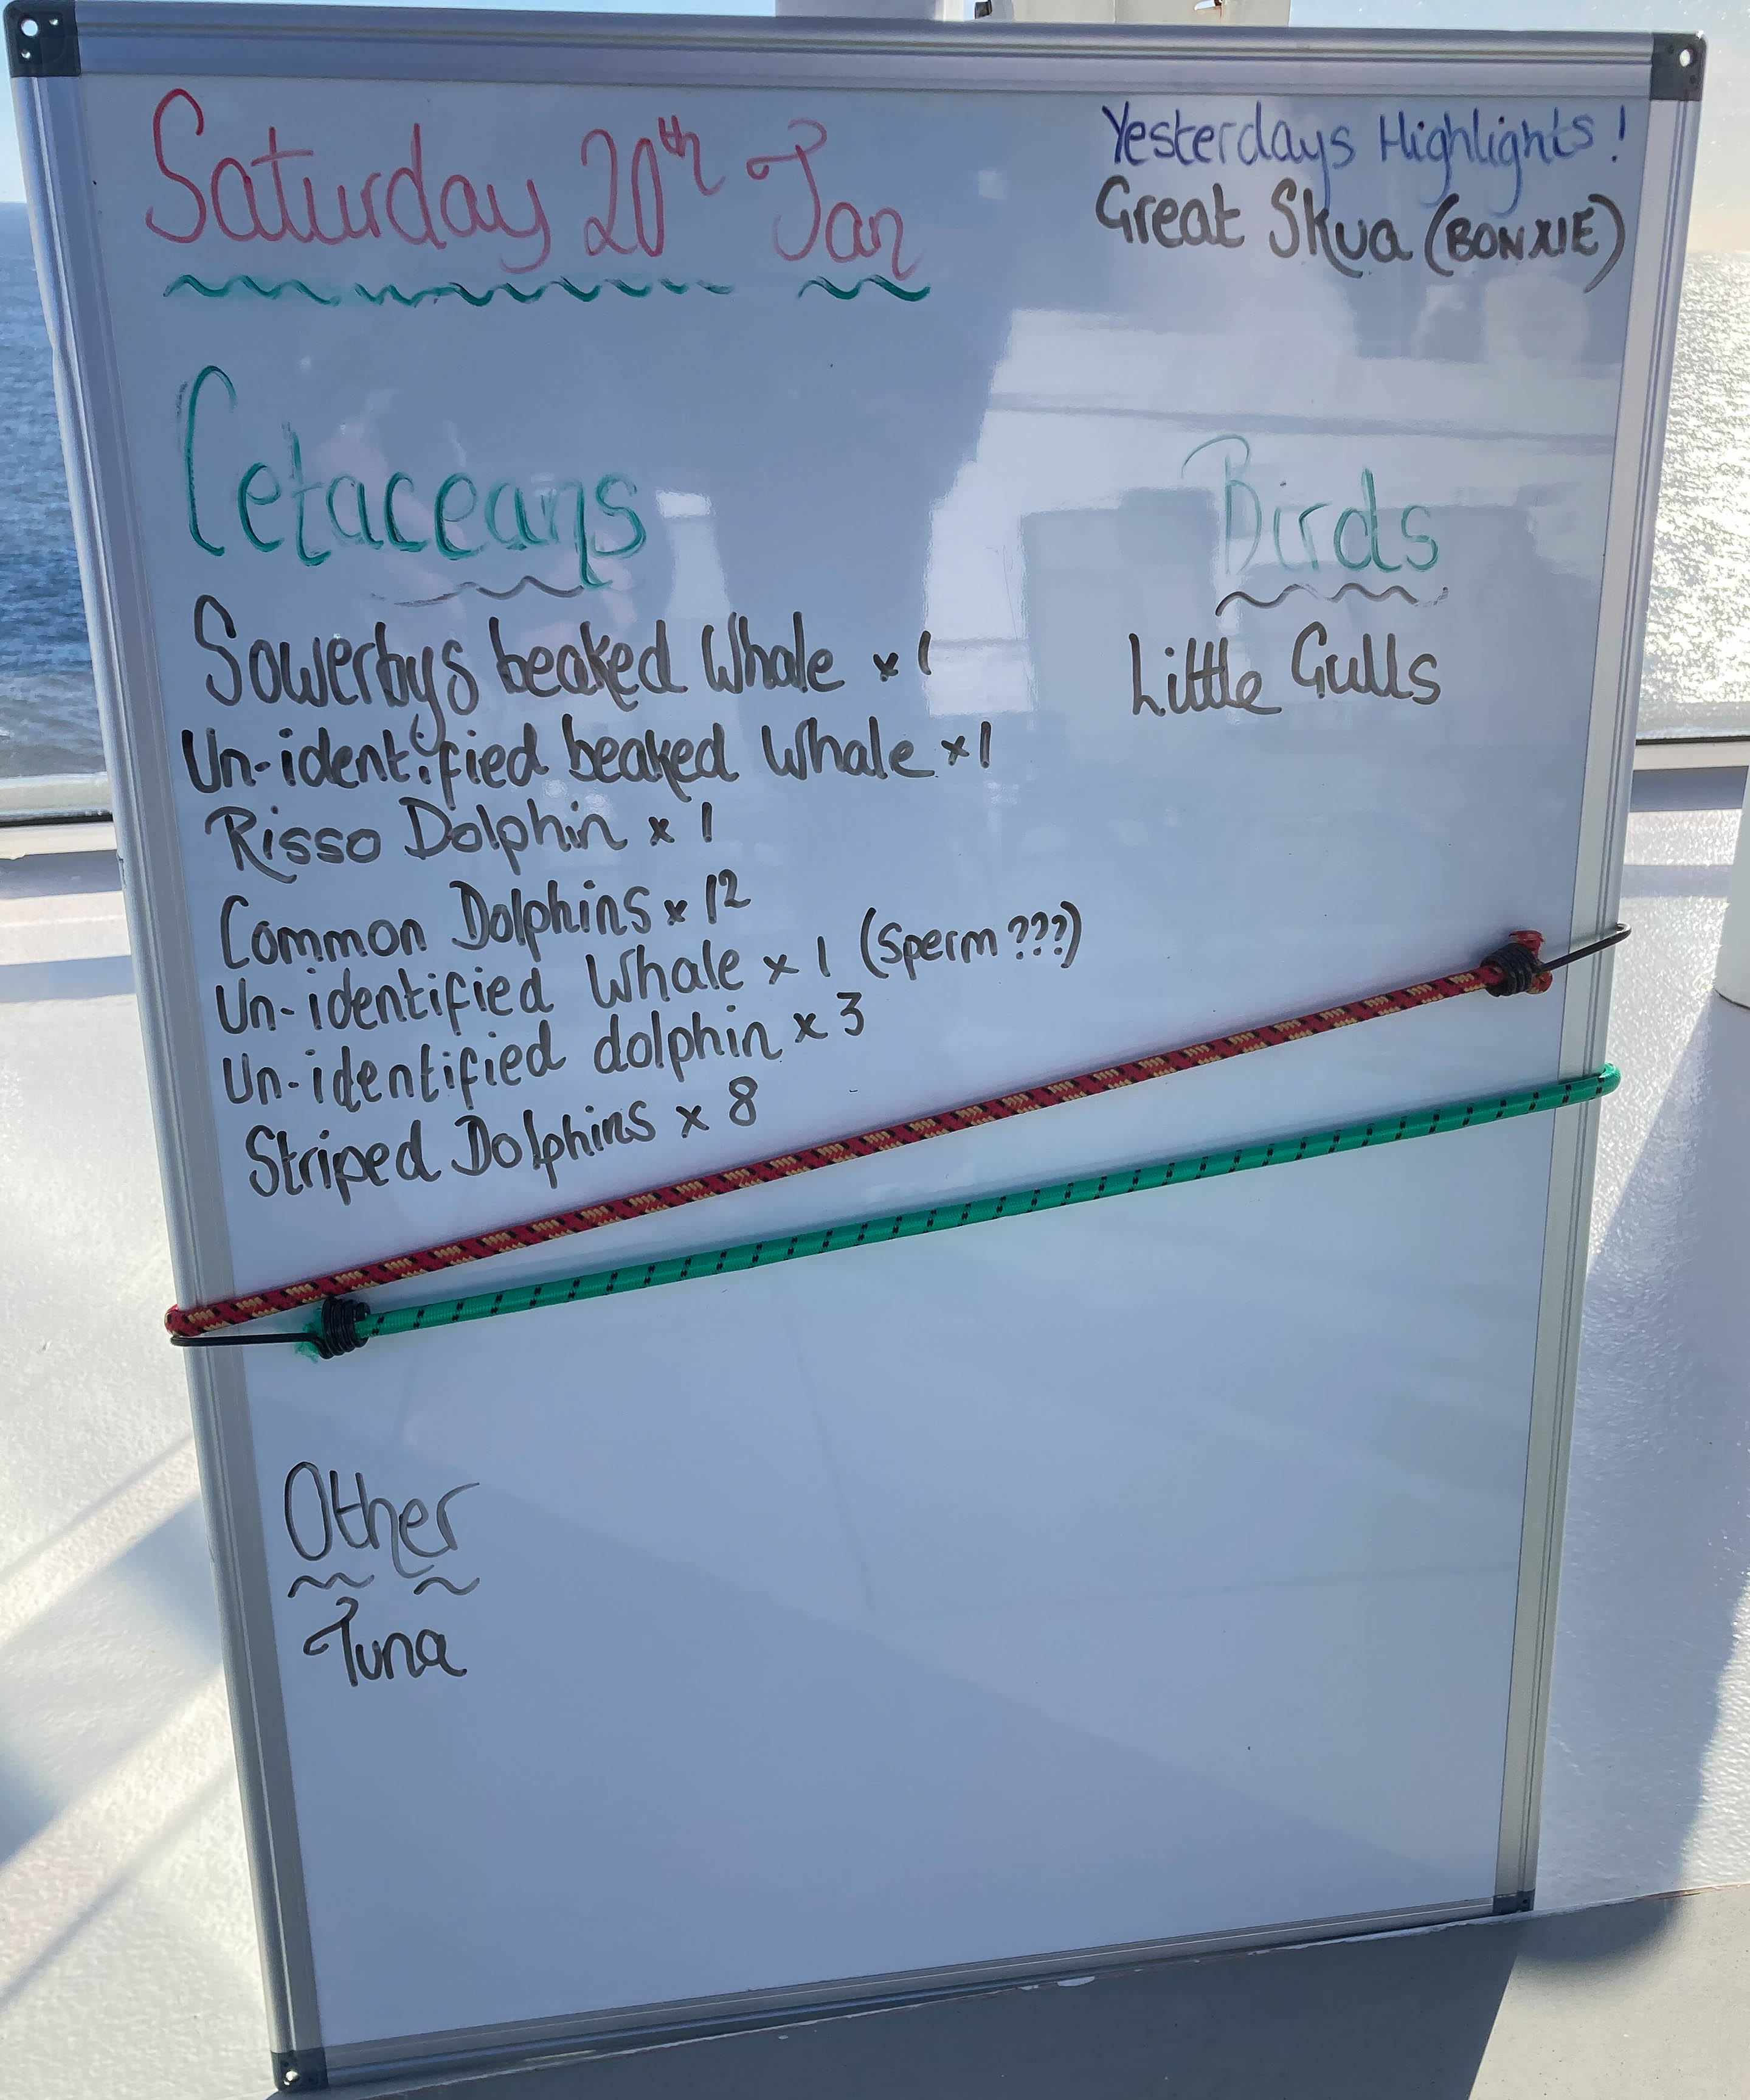 Saturday 20th Jan
Yesterdays Highlights!
Great Skua (BONXIE)
Cetaceans
Sowerbys beaked Whale x 1
Un-identified beaked Whale x 1
Risso Dolphin x 1
Common Dolphins x 12
Un-identified Whale x 1 (Sperm ???)
Un-identified dolphin x 3
Striped Dolphins x 8
Birds
Little Gulls
Other
Tuna